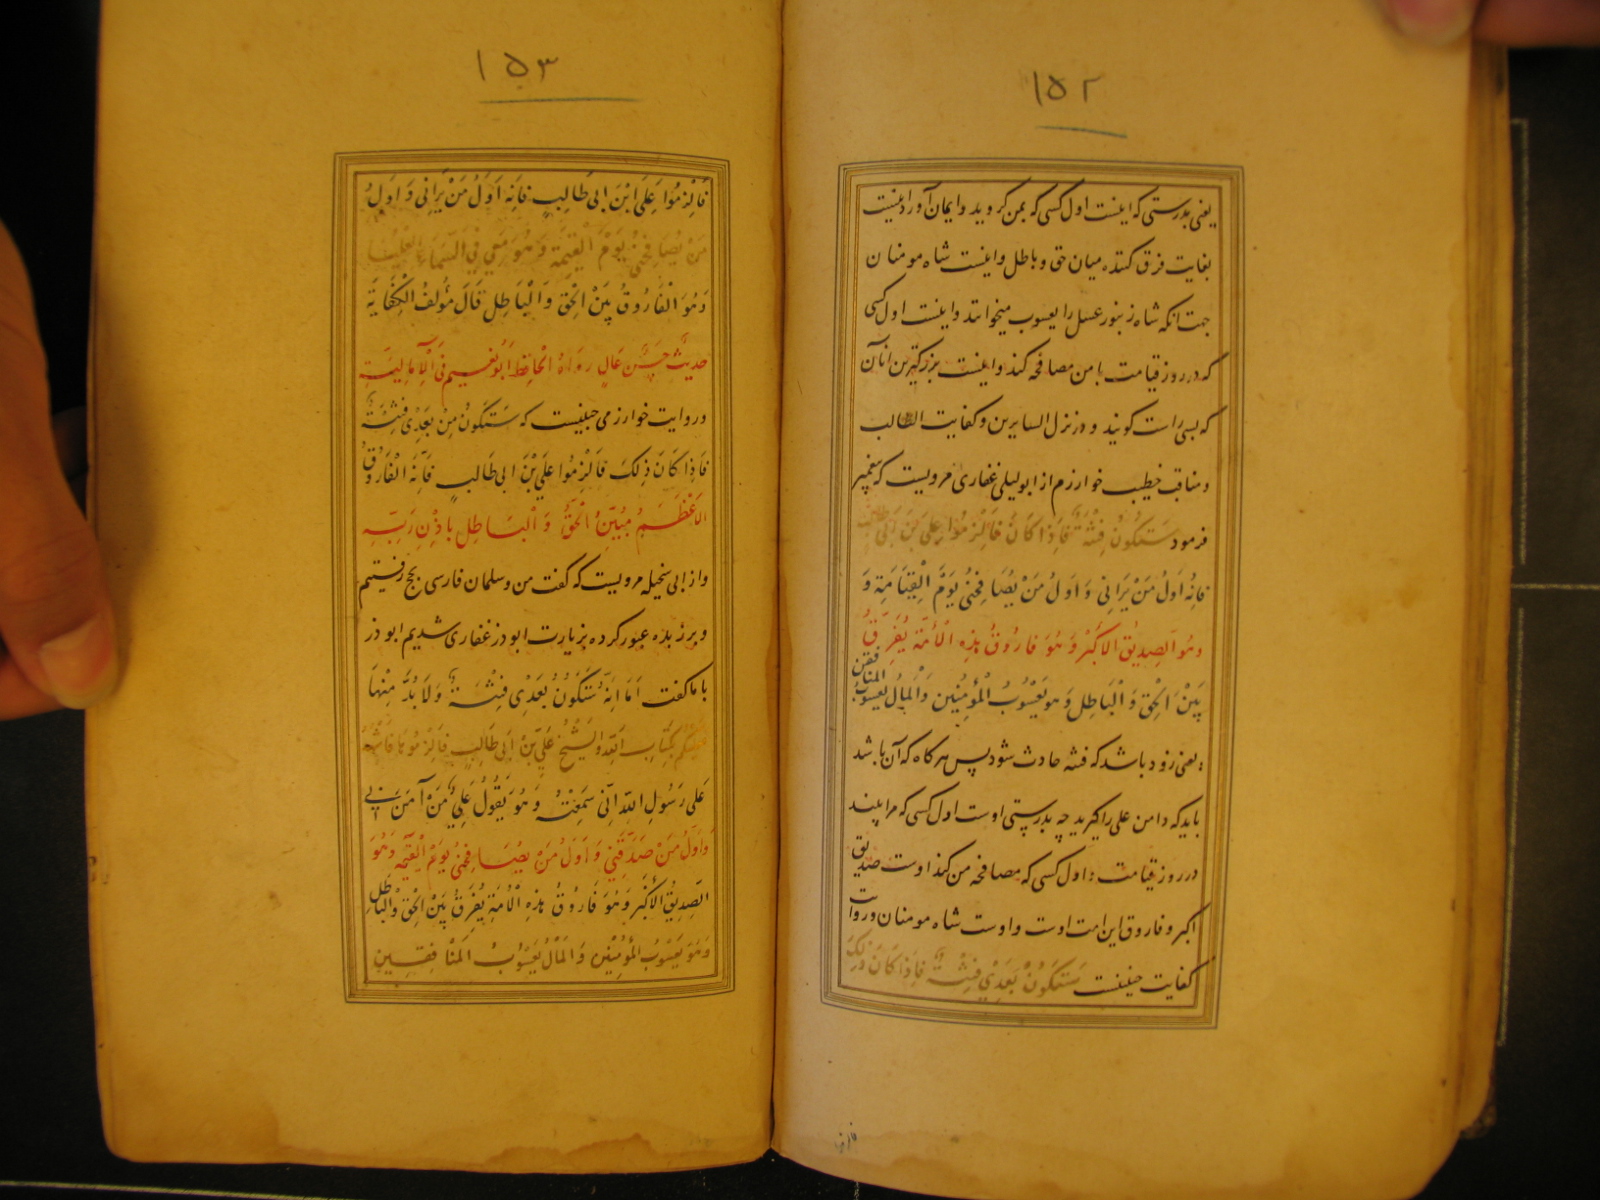 ١٥٢
یعنی بدرستی که اینست اول کسی که بمن کروید وایمان آورد اینست
بغایت فرق کننده میان حق و باطل واینست شاه مومنان
جهت انکه شاه زنبور عسل را یعسوب میخوانند واینست اول کسی
که در روز قیامت بامن مصافحه کند واینست بزرکترین انان
که بسی راست کویند و در نزل السایرین و کفایت الطالب
و مناقب خطیب خوارزم از ابولیلی غفاری مرویست که پیغمبر
فرمود سَتَکُونُ فِتْنَةٌ فَاِذَا کَانَ فَالْزَمُوا عَلِیَّ بْنَ اَبِی طَالِبٍ
فَاِنَّهُ اَوَّلُ مَنْ یَرَانِی وَ اَوَّلُ مَنْ یُصَافِحُنِی یَوْمَ الْقِیَامَةِ وَ
وهُوَ الصِّدِیقُ الاَکْبَرُ وَ هُوَ فَارُوقُ هذِهِ الْاُمَّةِ یُفَرِّقُ
بَیْنَ الْحَقِّ وَ الْبَاطِلِ وَ هُوَ یَعْسُوبُ الْمُؤْمِنِینَ وَالْمَالُ یَعْسُوبُ المنافقین
یعنی زود باشد که فتنه حادث شود پس هر کاه که آن باشد
باید که دامن علی را کیرید چه بدرستی اوست اول کسی که مرا بیند
در روز قیامت : اول کسی که مصافحه من کند اوست صدیق
اکبر و فاروق این امت اوست واوست شاه مومنان وروایت
کفایت چنینست سَتَکُونُ بَعْدِی فِتْنَةٌ فَاِذَا کَانَ ذلِکَ
١٥٣
فَالْزَمُوا عَلِیَّ ابْنَ ابی طَالِبٍ فَاِنَّهُ اَوَّلُ مَنْ یَرَانِی وَ اَوَّلُ
مَنْ یُصَافِحُنِی یَوْمَ الْقِیمَةِ وَ هُوَ مَعِی فِی السَّمَاءِ الْعُلْیَا
وَهُوَ الْفَارُوقُ بَیْنَ الْحَقِّ وَالْبَاطِلِ قَالَ مُؤَلِّفُ الْکِفَایَةِ
حَدِیثٌ حَسَنٌ عَالٍ رَوَاهُ الْحَافِظُ اَبُو نُعَیمٍ فِی الْاَمَالِی
وروایت خوارزمی چنینست که سَتَکُونُ مِنْ بَعْدِی فِتْنَةٌ
فَاِذَا کَانَ ذلِکَ فَالْزَمُوا عَلِیَّ بْنَ ابی طَالِبٍ فَاِنَّهُ الْفَارُوقُ
الاَعْظَمُ مُبَیِّنُ الْحَقِّ وَ الْبَاطِلِ بِاِذْنِ رَبِّهِ
واز ابی سخیله مرویست که گفت من وسلمان فارسی بحج رفتیم
وبر ربذه عبور کرده بزیارت ابوذر غفاری شدیم ابوذر
باما کفت اَمَا اِنَّهُ سَتَکُونُ بَعْدِی فِتْنَةٌ وَلَابُدَّ مِنْهَا
فَعَلَیْکُمْ بِکِتَابِ اللّهِ وَالشَّیْخِ عَلِیِّ بْنِ اَبِی طَالِبٍ فَالْزَمُوهُمَا
عَلی رَسُولِ اللّهِ اَنِّی سَمِعْتُهُ وَ هُوَ یَقُولُ عَلِیٌّ اَوَّلُ مَنْ آمَنَ بِی
وَاَوَّلُ مَنْ صَدَّقَنِی وَ اَوَّلُ مَنْ یُصَافِحُنِی یَوْمَ الْقِیمَةِ وَهُوَ
الصِّدِیقُ الْاَکْبَرُ وَهُوَ فَارُوقُ هذِهِ الْاُمَّةِ یُفَرِّقُ بَیْنَ الْحَقِّ وَالْبَاطِلِ
وَهُوَ یَعْسُوبُ الْمُؤْمِنِینَ وَالْمَالُ یَعْسُوبُ الْمُنَافِقِینَ